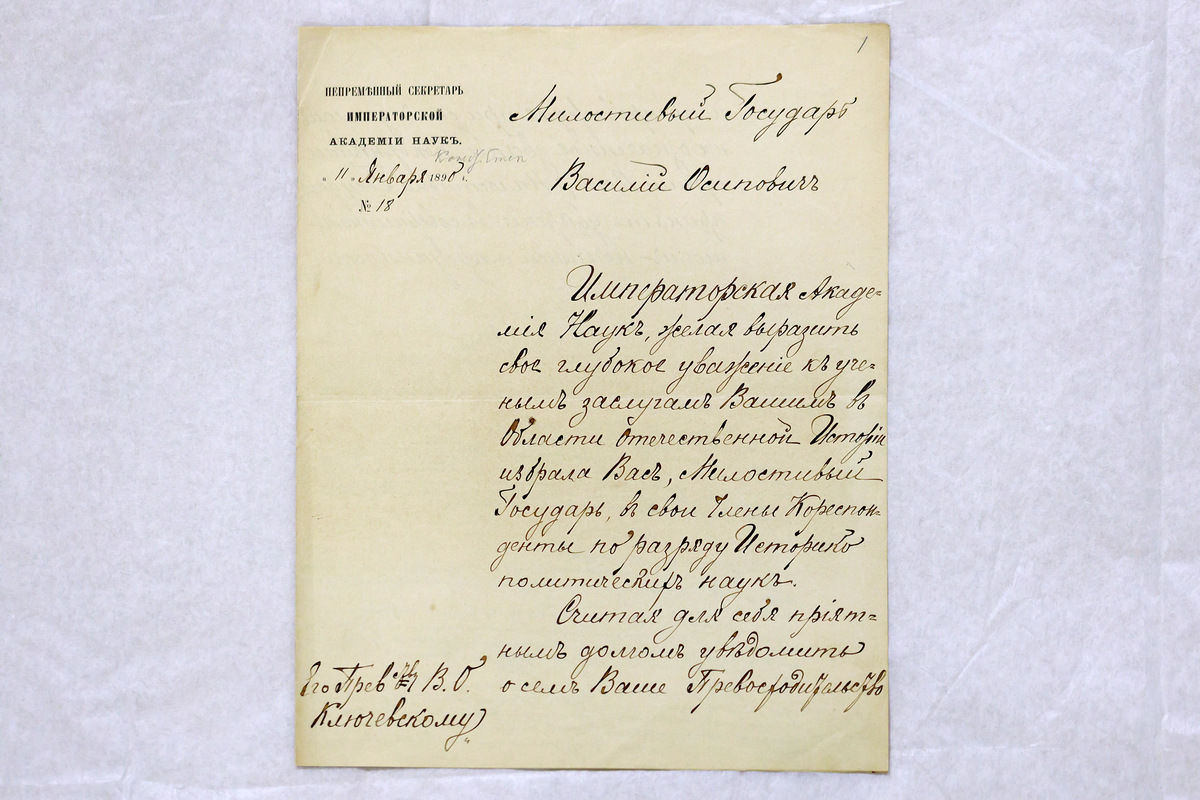 1
НЕПРЕМѢННЫЙ СЕКРЕТАРЬ
ИМПЕРАТОРСКОЙ
АКАДЕМІИ НАУКЪ.
„ 11 „ Января 1890 г.
№ 18
Милостивый Государь
Василій Осиповичъ
Императорская Акаде=
мія Наукъ, желая выразить
свое глубокое уваженіе къ уче=
нымъ заслугамъ Вашимъ въ
Области Отечественной Исторіи
избрала Васъ, Милостивый
Государь, въ свои Члены Кореспон=
денты по разряду Историко
политическихъ наукъ.
Считая для себя пріят=
нымъ долгомъ увѣдомить
о семъ Ваше Превосходительство
Его Прев ству В. О.
Ключевскому